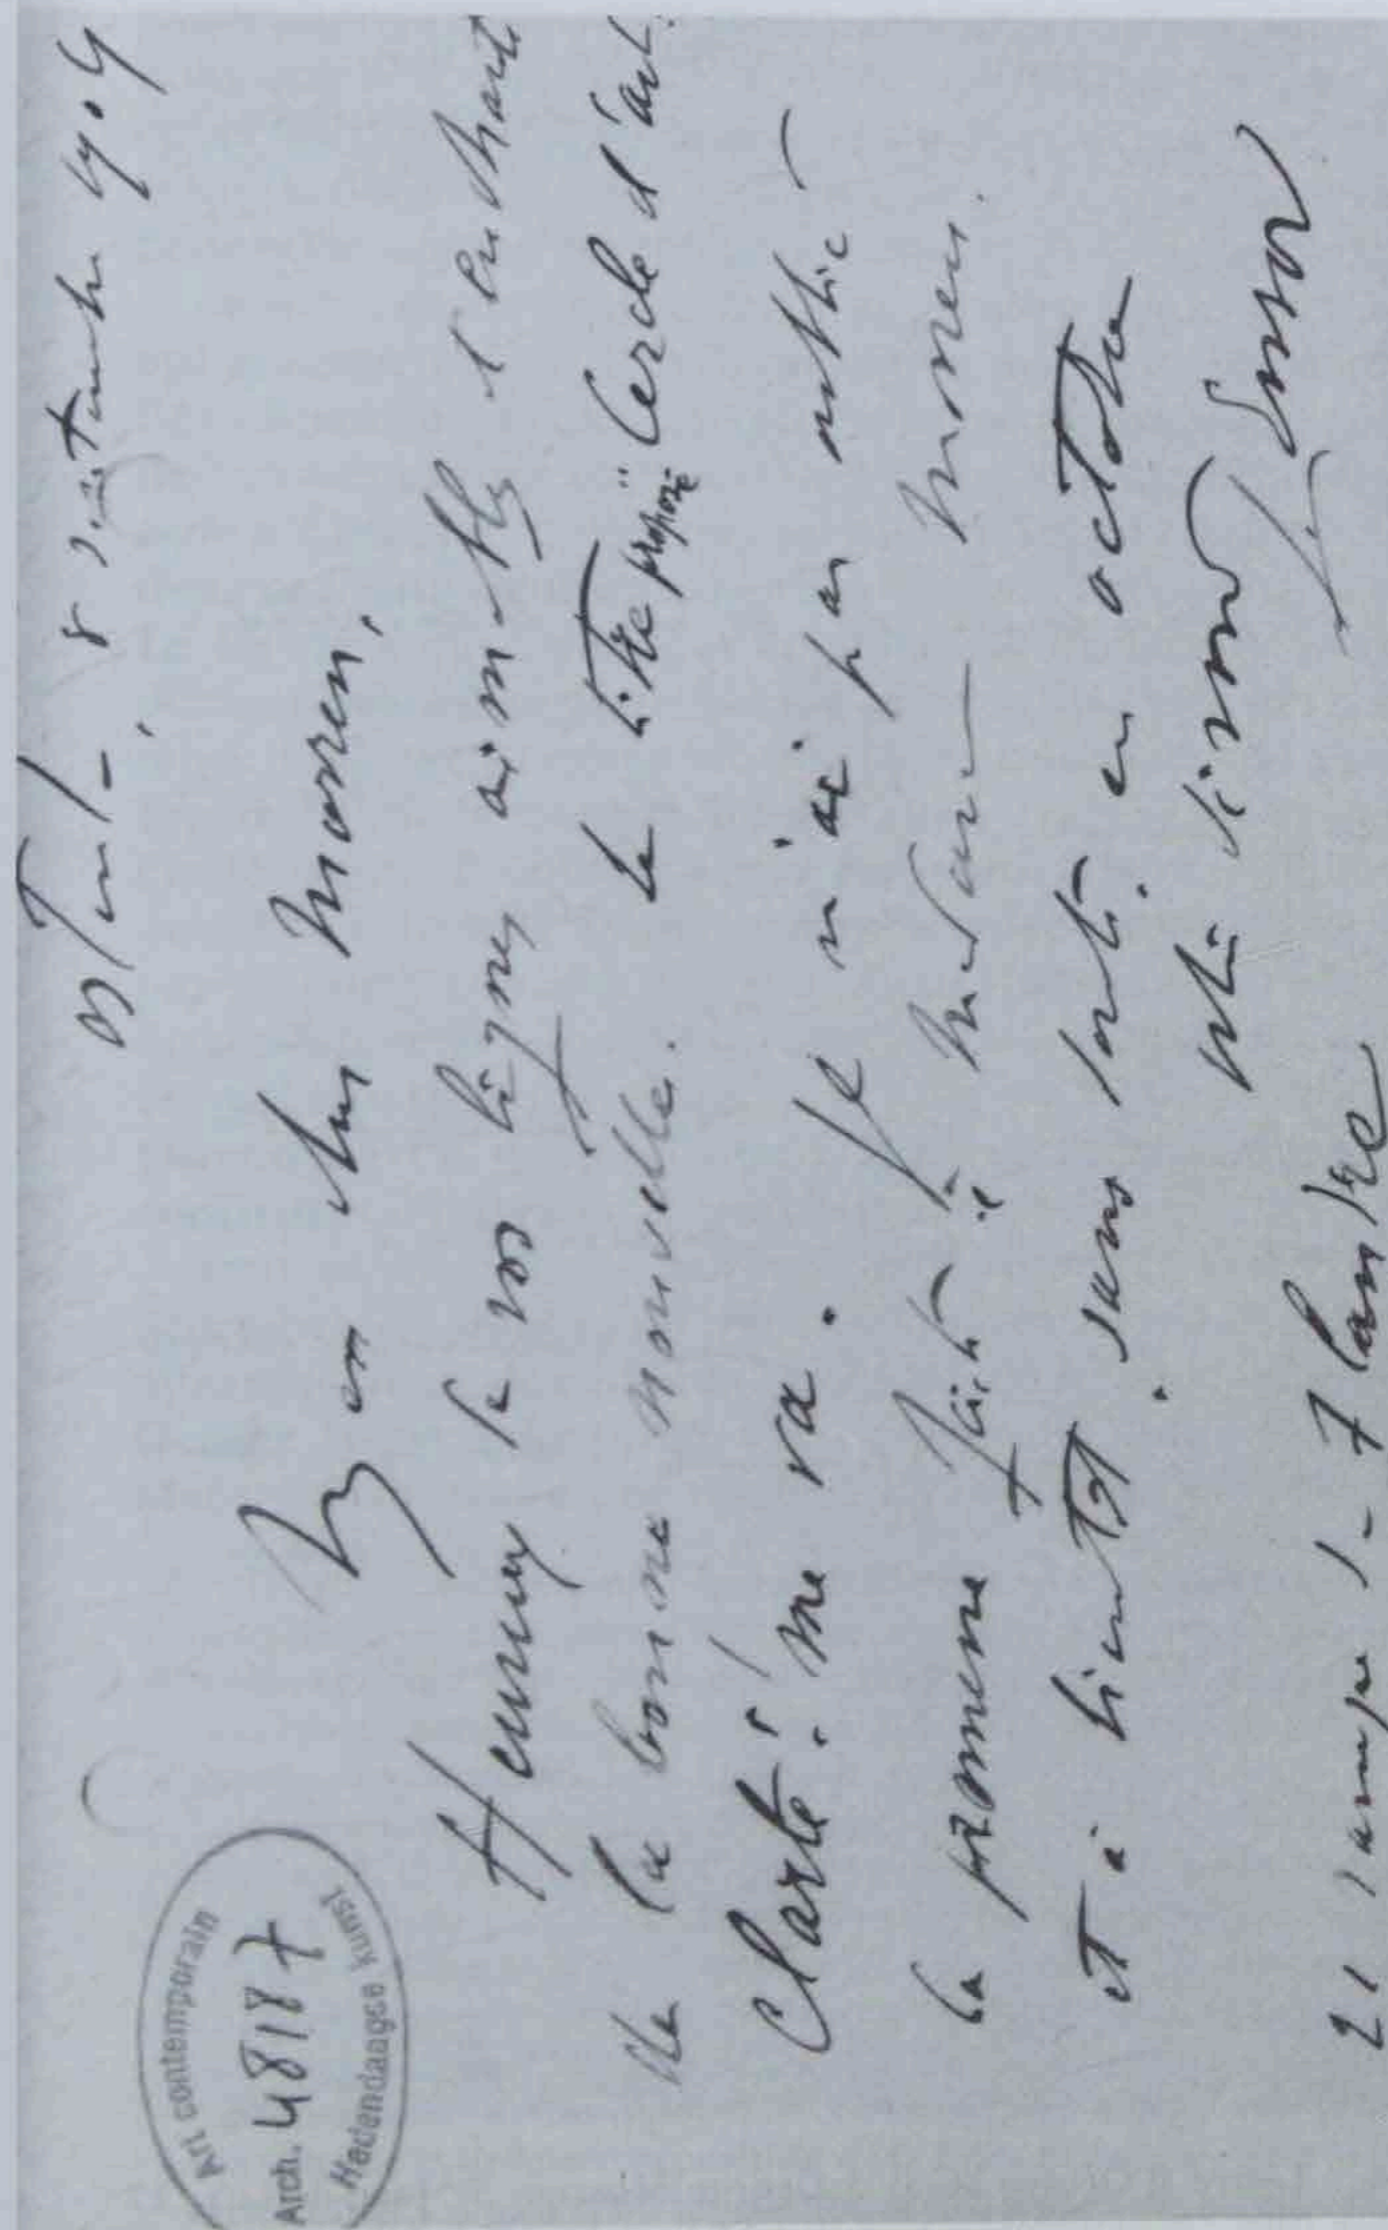 Art contemporain
Arch. 4817
Hedendaagse kunst
Ostende, 8 septembre 1904
Mon cher Morren,
Heureux de vos lignes aimables et
de la bonne nouvelle. Le titre proposé "Cercle d'art
Clarté"! me va. Je n'ai pas oublié
la promenade faite Madame Morren.
et à bientôt. sans tarder. en octobre
votre Ensor
27 rampe de Flandre